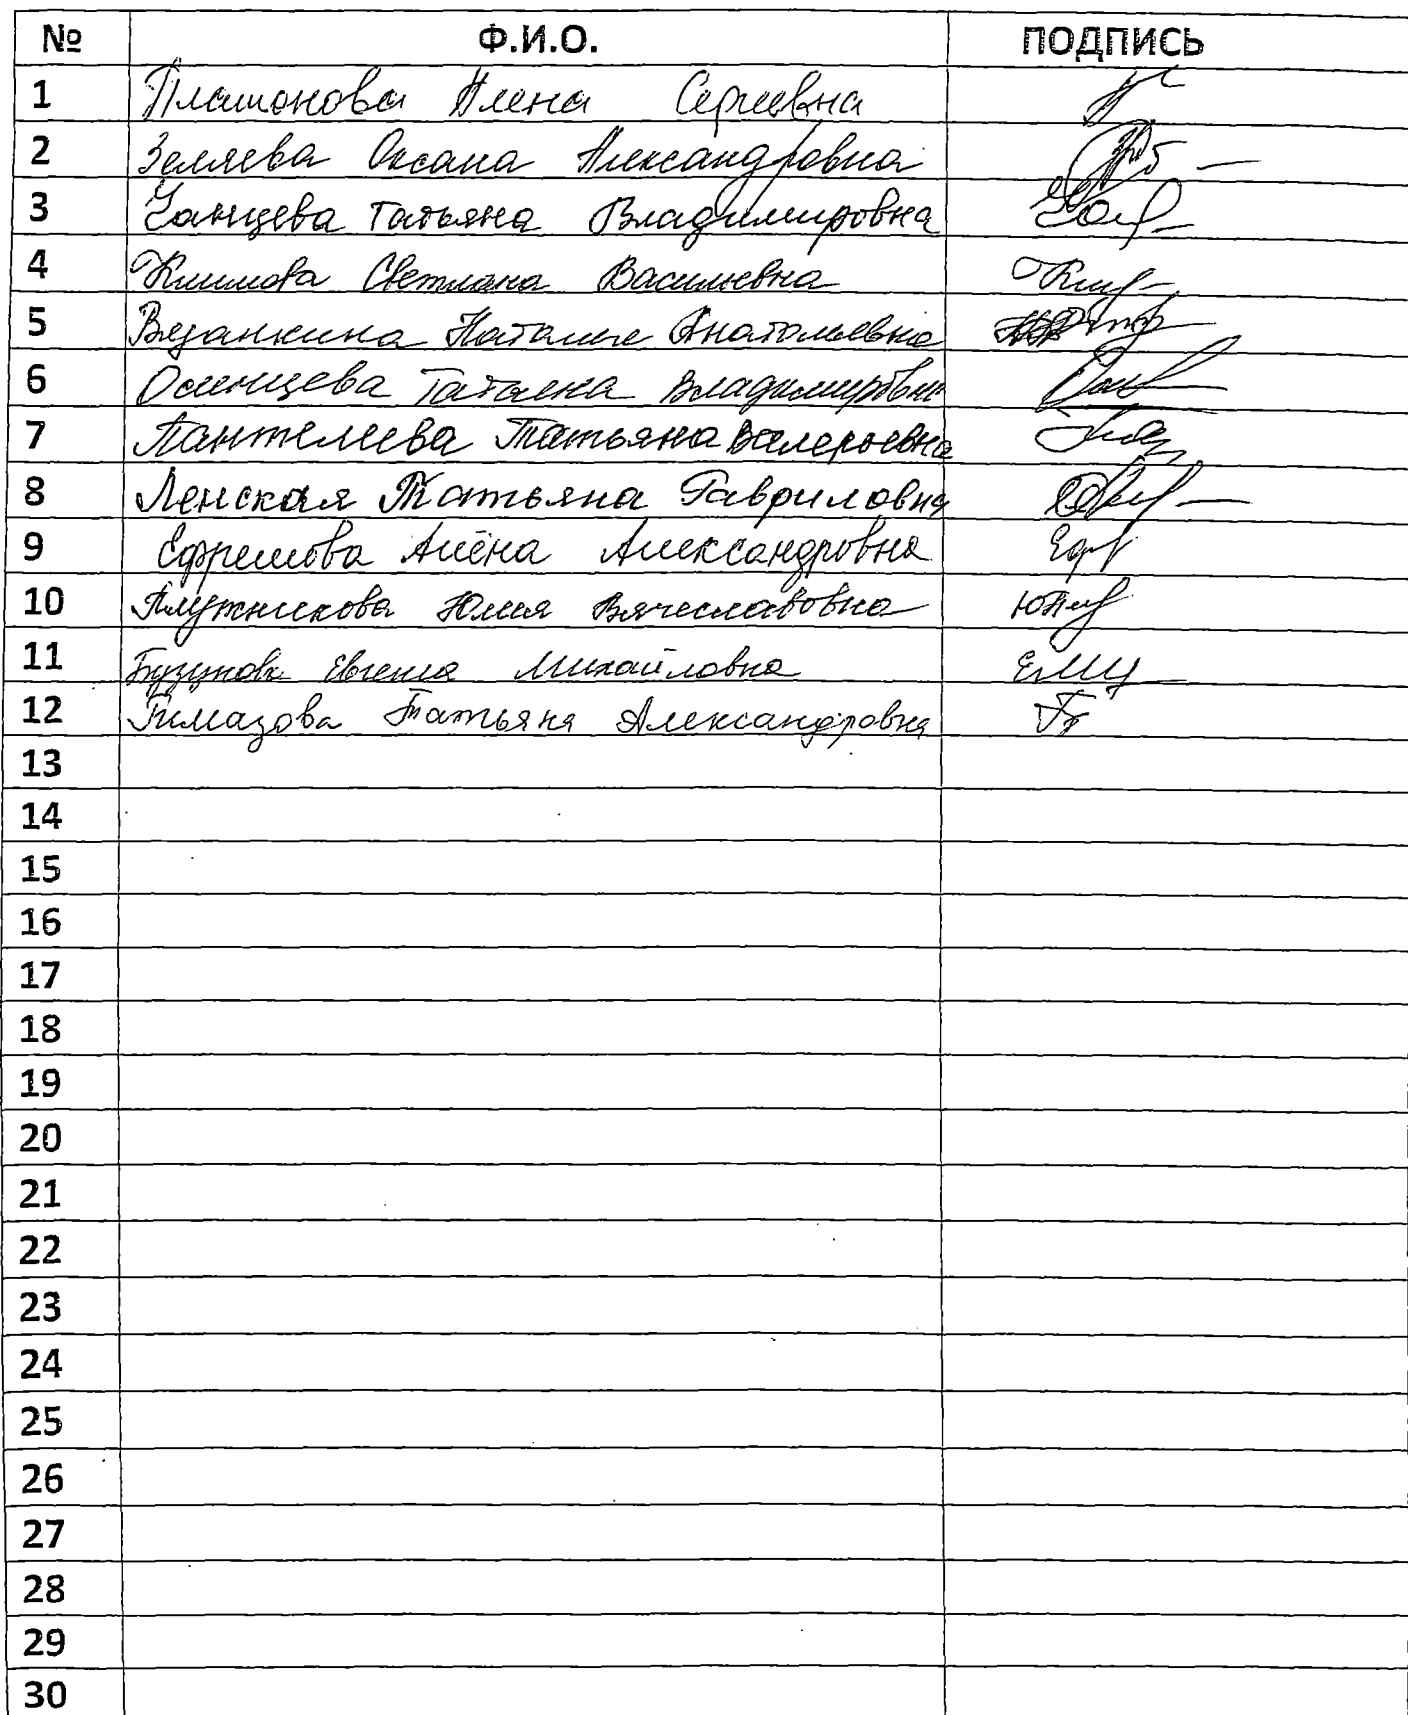 № Ф.И.О. ПОДПИСЬ
1 Платонова Алена Сергеевна
2 Земляева Оксана Александровна
3 Танцева Татьяна Владимировна
4 Климова Светлана Васильевна
5 Вязанкина Наталья Анатольевна
6 Осинцева Татьяна Владимировна
7 Пантелеева Татьяна Валерьевна
8 Ленская Татьяна Гавриловна
9 Ефремова Алёна Александровна
10 Плужникова Юлия Вячеславовна
11 Евгения Михайловна
12 Татьяна Александровна
13
14
15
16
17
18
19
20
21
22
23
24
25
26
27
28
29
30